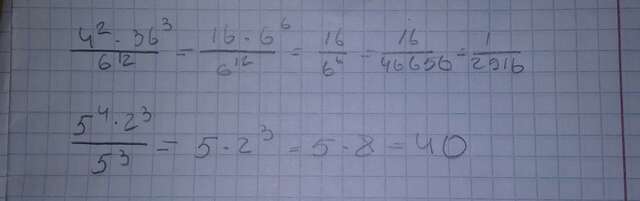 4² · 36³ / 6¹² = 16 · 6⁶ / 6¹² = 16 / 6⁶ = 16 / 46656 = 1 / 2916
5⁴ · 2³ / 5³ = 5 · 2³ = 5 · 8 = 40